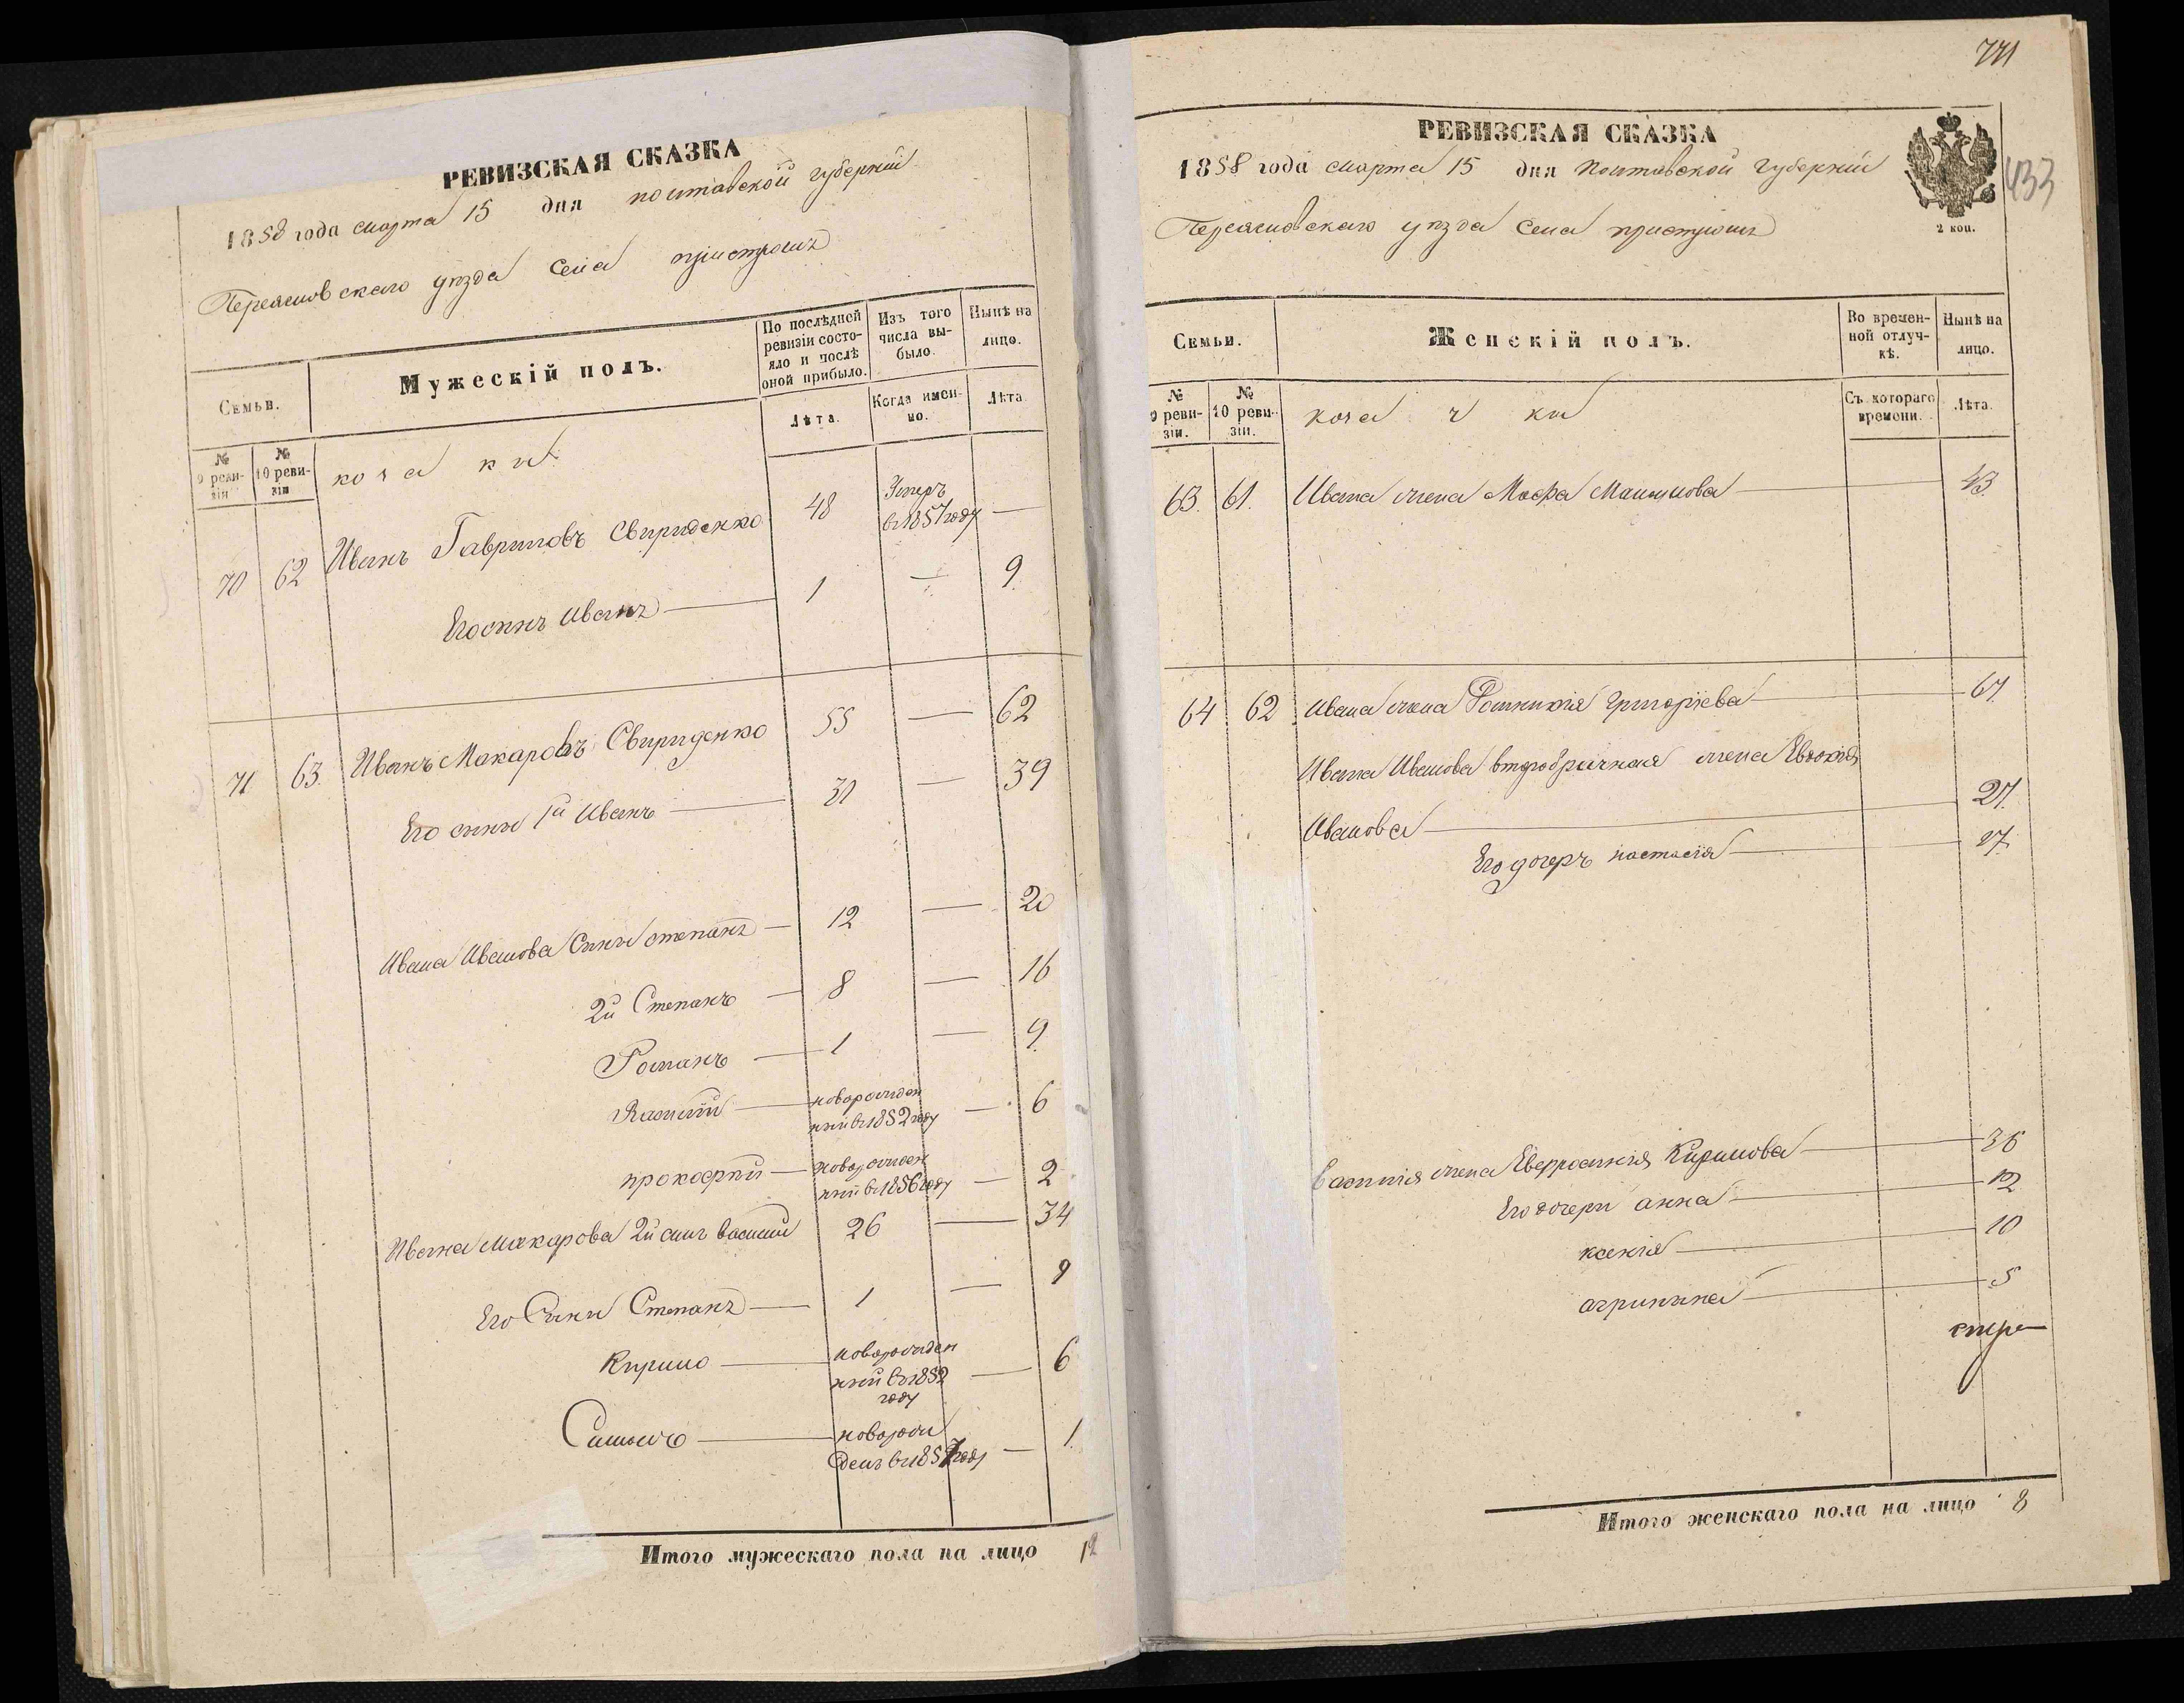 РЕВИЗСКАЯ СКАЗКА
1858 года марта 15 дня полтавской губернии
Переяславскаго уѣзда села пристромъ
Семьи.
Мужескій полъ.
По послѣдней ревизіи состояло и послѣ оной прибыло.
Изъ того числа выбыло.
Нынѣ на лицо.
Лѣта.
Когда именно.
Лѣта
№ 9 ревизіи
№ 10 ревизіи
козаки
70 62 Иванъ Гавриловъ Свириденко 48 Умеръ в 1857 году —
Его сынъ Иванъ — 1 — 9
71 63 Иванъ Макаровъ Свириденко 55 — 62
Его сыны 1й Иванъ — 31 — 39
Ивана Иванова Сыны степанъ — 12 — 20
2й Степанъ — 8 — 16
Романъ — 1 — 9
новорожден
ный в 1852 году — 6
прокофий — новорожден
ный в 1856 году — 2
Ивана Макарова 2й сынъ василий 26 — 34
Его Сыны Степанъ — 1 — 9
Кирило — новорожден
ный в 1852 — 6
году
Самоилъ — новорож
денъ в 1857 году — 1
Итого мужескаго пола на лицо 12
771
РЕВИЗСКАЯ СКАЗКА
433
1858 года марта 15 дня Полтавской Губернии
Переяславскаго уѣзда Села пристромъ
2 коп.
Семьи.
Женскій полъ.
Во временной отлучкѣ.
Нынѣ на лицо.
№ 9 ревизіи.
№ 10 ревизіи.
козачки
Съ котораго времени.
Лѣта.
63. 61. Ивана жена Марфа — 43
64 62 Ивана жена Григоріева — 67
Ивана Иванова второбрачная жена Евдокія
Иванова — 27
Его дочерь настасія — 17
василия жена Евфросинія Кирилова — 36
Его дочери анна — 12
ксенія — 10
агрипина — 5
Итого женскаго пола на лицо 8